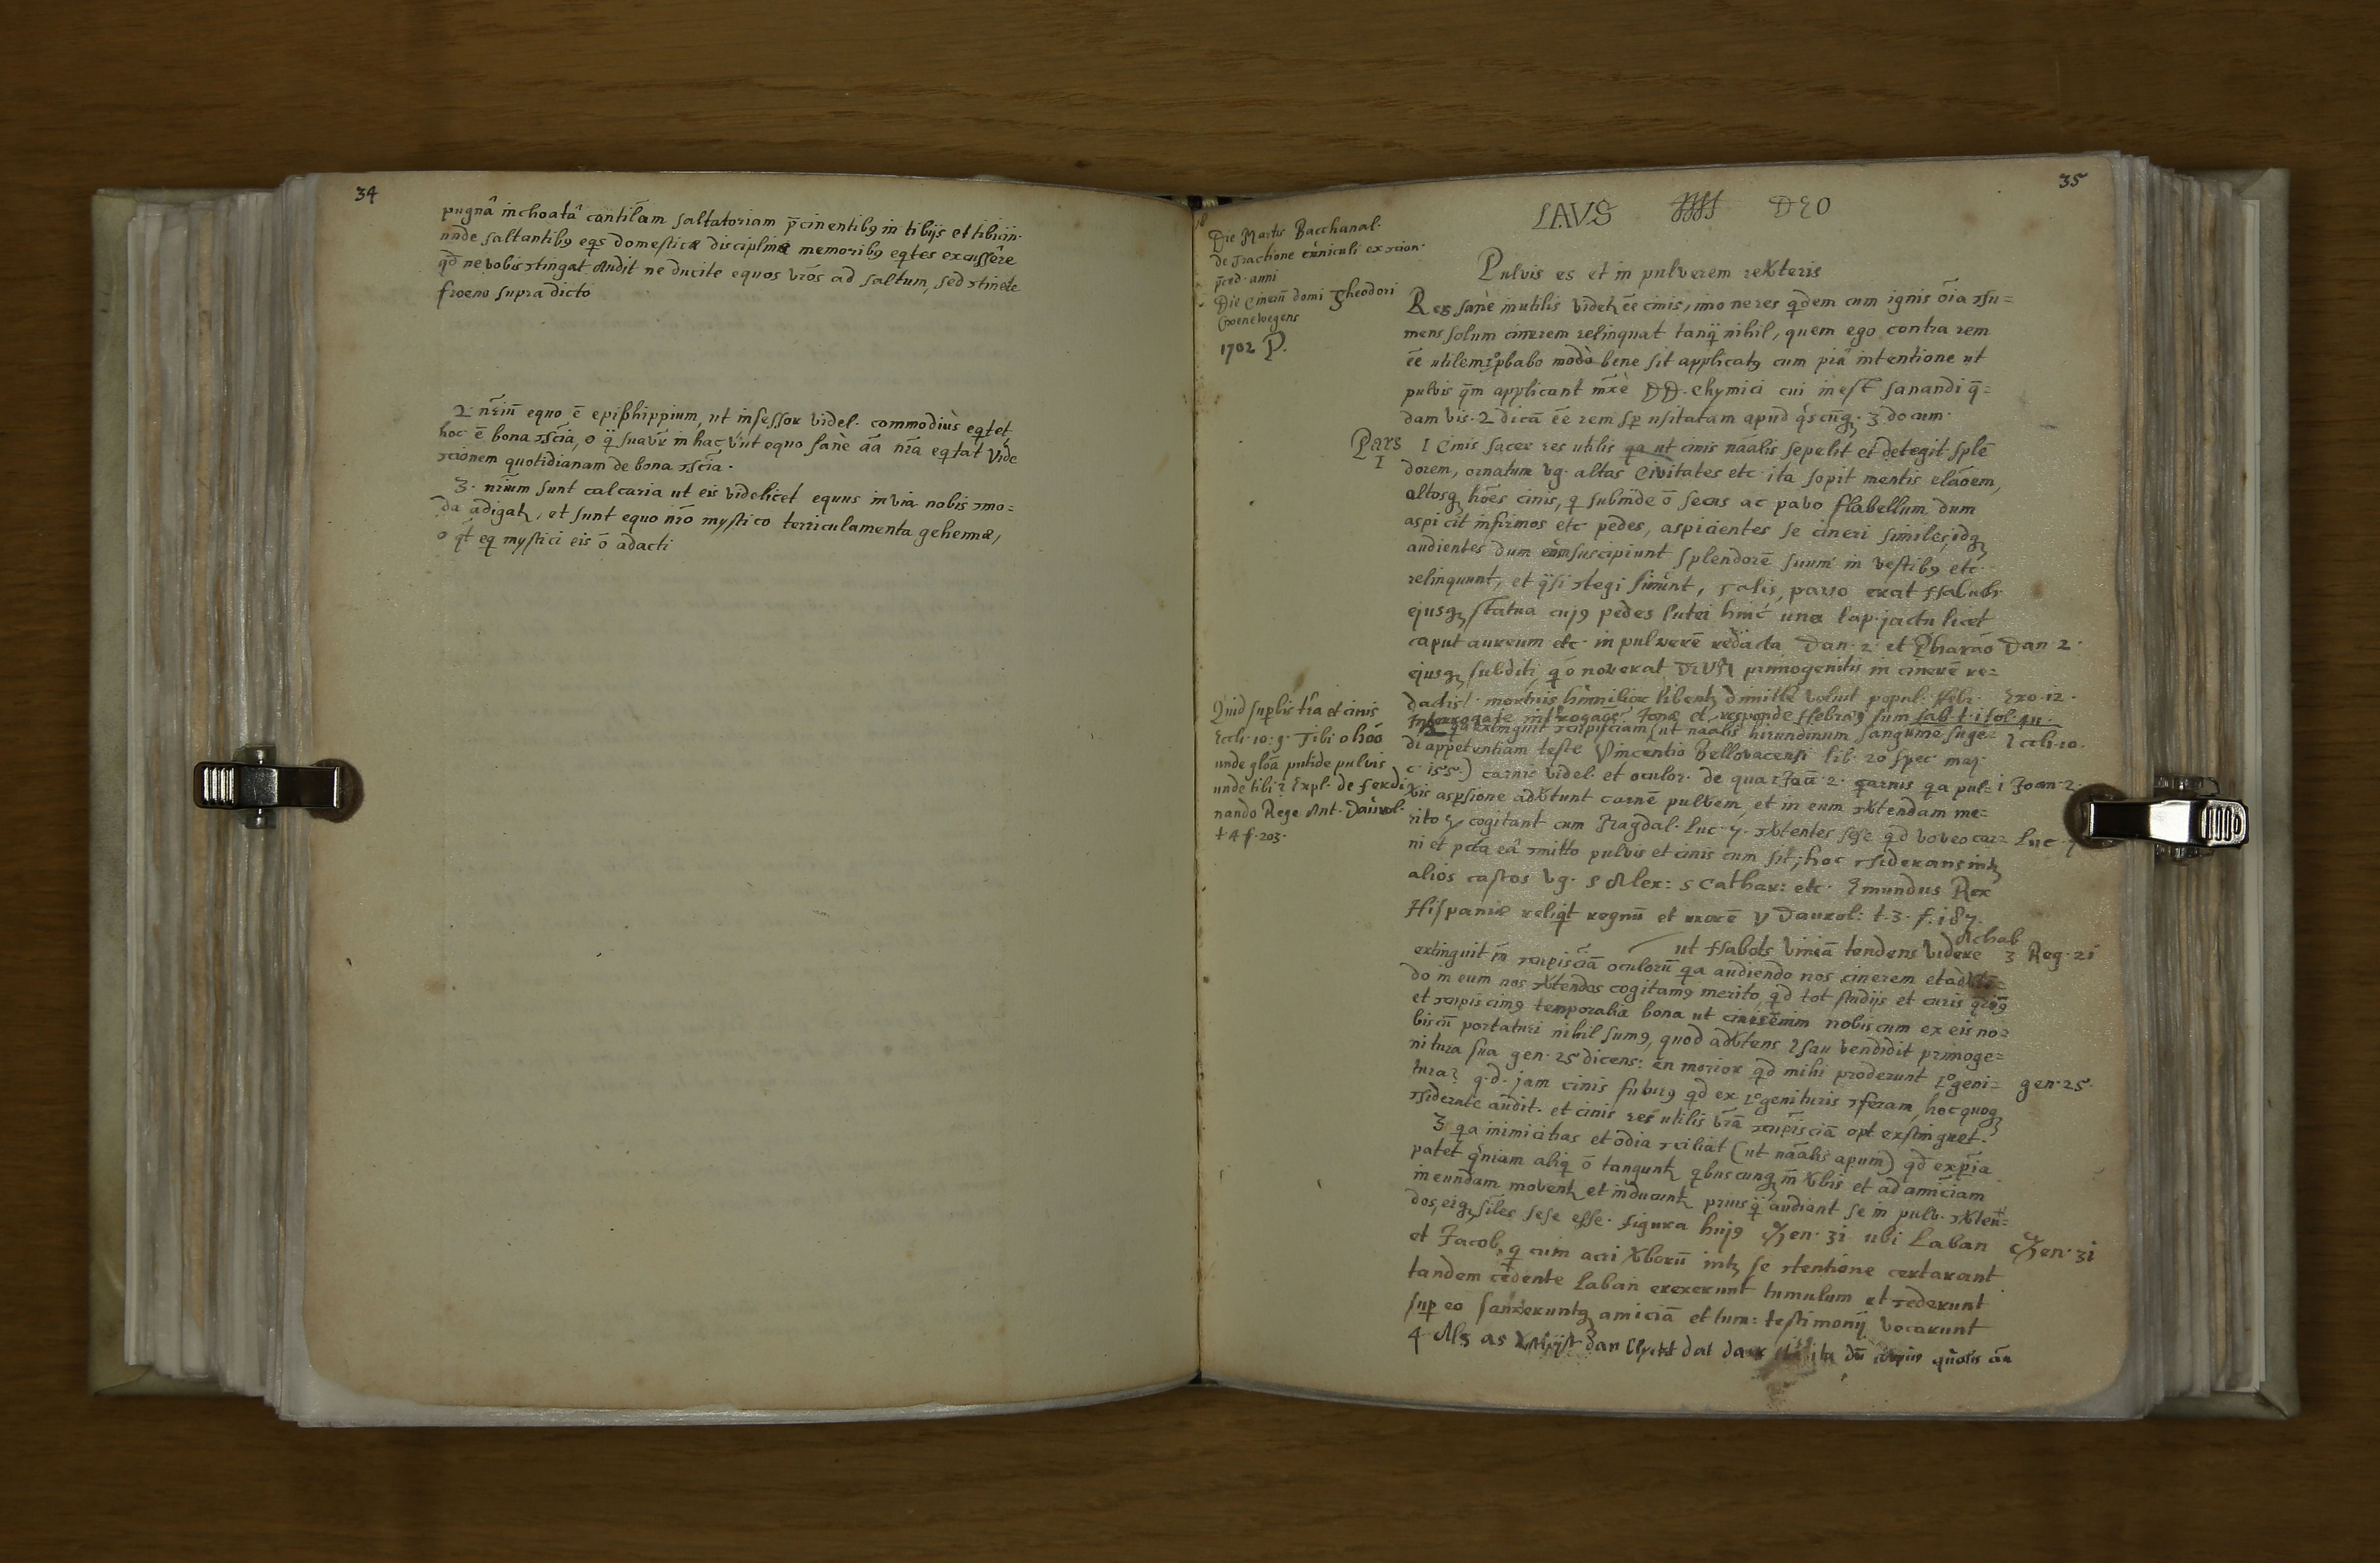 34
pugnâ inchoatâ cantilam saltatoriam p̄cinentibꝯ in tibijs et tibicin.
unde saltantibꝯ eqs domesticæ disciplinæ memoribꝯ eqtes excussêre
qd̄ ne vobis ɔtingat Audit ne ducite equos vr̄os ad saltum, sed ɔtinete
froeno supra dicto
2. nr̄iū equo ē epiphippium, ut insessor videl. commodiùs eqtet
hoc ē bona ɔscīa, o q̄ suavr̄ in hac vūt equo sanè āa nr̄a eqtat vide
ɔcionem quotidianam de bona ɔscīa.
3. nr̄ium sunt calcaria ut eis videlicet equus in via nobis ɔmo=
da adigatꝛ, et sunt equo nr̄o mystico terriculamenta gehennæ,
o qt̄ eq mystici eis ō adacti
35
LAVS DEO
Die Martis Bacchanal.
de tractione cuniculi ex ɔcion.
p̄ced. anni
Die Cinerū domi Theodori
Groenewegens
1702 P.
Pulvis es et in pulverem reXteris
Res sanè inutilis videtꝛ ēē cinis, imo ne res qdem cum ignis ōia ɔsu=
mens solum cinerem relinquat tanq̄ nihil, quem ego contra rem
ēē utilem 1º pbabo modò bene sit applicatꝯ cum piâ intentione ut
pulvis q̄m applicant mx̄è DD. Chymici cui inest sanandi q̄=
dam vis. 2 dicā ēē rem sp̄ usitatam apud qscūqꝫ. 3 docum.
Pars
I
1 Cinis sacer res utilis qa ut cinis nāalis sepelit et detegit splē
dorem, ornatum vg. altas Civitates etc. ita sopit mentis elāoem,
altosqꝫ hōēs cinis, q subinde ō secus ac pavo flabellum dum
aspicit infirmos etc pedes, aspicientes se cineri similes, idqꝫ
audientes dum eum suscipiunt splendorē suum in vestibꝯ etc.
relinquunt, et q̄si ɔtegi sinunt, talis, pavo erat
ejusqꝫ statua cujꝯ pedes lutei hinc una lap. jactu licet
caput aureum etc. in pulverē redacta Dan. 2. et Pharao Dan 2.
ejusqꝫ subditi, q ō noverat primogenitis in cinerē re=
dactis/. mortuis humilior libentꝛ dimittē voluit popul. Hebr. Exo. 12.
Interrogate introgatꝯ Jonas et responde Hebræꝯ sum
2 qa extinguit ɔcupiscīam (ut nāalis hirundinum sanguinē suge= Ecli. 10.
di appetentiam teste Vincentio Bellovacensi lib. 20 spec maj.
c. 155.) carnis videl. et oculor. de qua 1 Joā. 2. carnis qa pul= 1 Joan. 2.
Xis asp̄sione adXtunt carnē pulvem, et in eum ɔXtendam me=
rito cogitant cum Magdal. Luc. 7. ɔXtentes sese qd voveo car= Luc. 7
ni et pcta eâ ɔmitto pulvis et cinis cum sit, hoc ɔsiderans intꝛ
alios castos vg. S Alex: S Cathar: etc. Emundus Rex
Hispaniæ reliqt regnū et uxorē V Daurol: t. 3. f. 187.
Quid superbis tr̄a et cinis
Eccli. 10. 9. Tibi o hōō
unde gloā putide pulvis
unde tibi? Expl. de ferdi
nando Rege Ant. Daurol.
t 4 f. 203.
Achab
ut Nabots viniā tendens videre 3 Reg. 21
extinguit m̄ ɔcupiscīā oculorū qa audiendo nos cinerem et
do in eum nos ɔXtendos cogitamꝯ merito, qd tot studijs et curis
et ɔcupiscimꝯ temporalia bona ut enim nobiscum ex eis no=
biscū portaturi nihil sumꝯ, quod adXtens Esau vendidit primoge=
nitura sua gen. 25 dicens: en morior qd mihi proderunt 1ºgeni= gen. 25.
tura? q.d. jam cinis futurꝯ qd ex 1ºgenituris ɔferam, hoc quoqꝫ
ɔsiderate audit. et cinis res utilis vr̄ā ɔcupiscīā opt exstinguet.
3 qa inimicitias et odia ɔciliat (ut nāalis apum) qd exp̄ia
patet qniam aliq ō tanguntꝛ qbuscunqꝫ m̄ Xbis et ad amicīam
ineundam moventꝛ et inducuntꝛ priusq̄ audiant se in pulv. ɔXten=
dos, eiqꝫ sīles sese esse. figura hujꝯ Gen. 31 ubi Laban Gen. 31
et Jacob, q cum acri Xborū intꝛ se ɔtentione certarant
tandem cedente Laban erexerunt tumulum et ɔederunt
sup eo sanxeruntqꝫ amiciā et tum: testimonij vocarunt
4 Als as